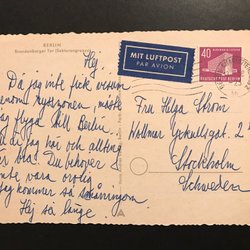 BERLIN
Brandenburger Tor (Sektorengrenze)
Hej
Då jag inte fick visum
genom nyszonen, måste
jag flyga till Berlin.
du jag har och allting
är bra. Du behöver
inte vara orolig
jag kommer så småningom
Hej så länge.
MIT LUFTPOST
PAR AVION
40
DEUTSCHE POST BERLIN
Fru Helga Strom
Wollmar
Stockholm
Schweden